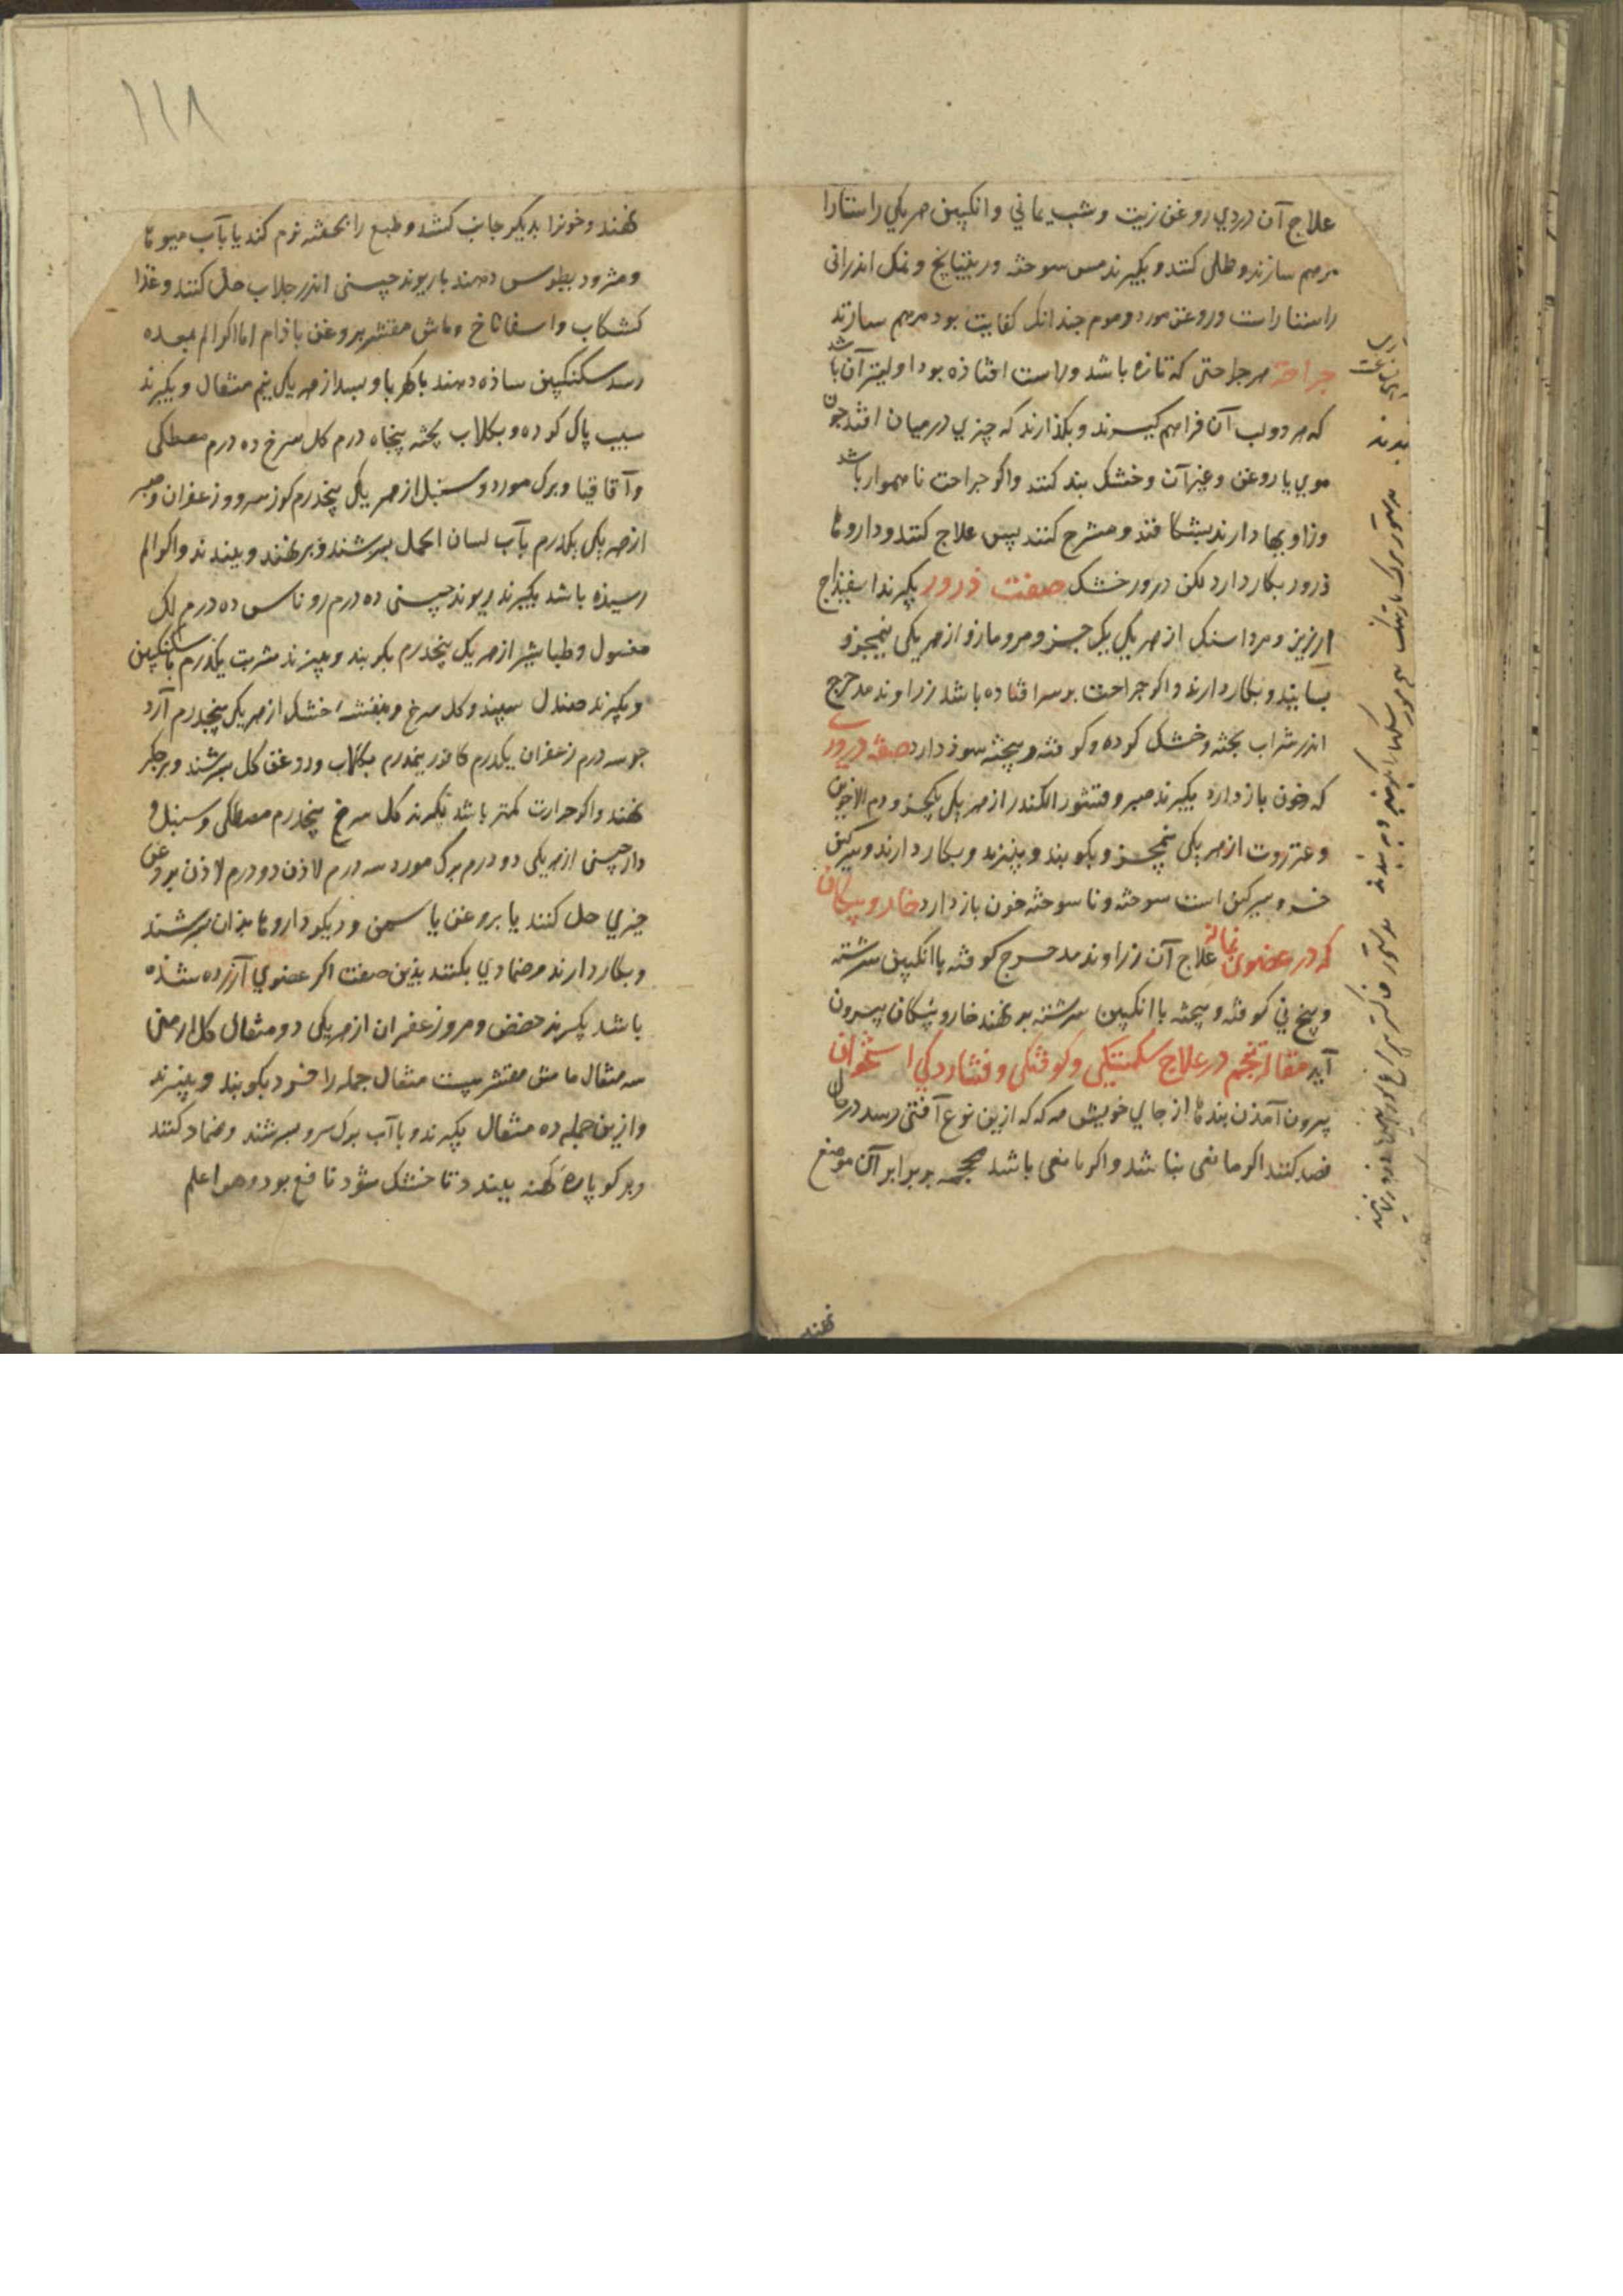 علاج آن دردي روغن زيت و شب يماني و انكبين هر يكي راستا را
مرهم سازند و طلي كنند و بكيرند مس سوخته و ريتيانج و نمك اندراني
راستا راست و روغن مورد و موم چندانك كفايت بود مرهم سازند
جراحت هر جراحتي كه تازه باشد و راست افتاذه بود اوليتر آن باشد
كه هر دو لب آن فراهم كيرند و بكذارند كه چيزي در ميان افتد چون
موي يا روغن و غير آن و خشك بند كنند و اكر جراحت ناهموار باشد
و زاويها دارند بشكافند و مشرح كنند پس علاج كنند و داروها
ذرور بكار دارد لكن ذرور خشك صفت ذرور بكيرند اسفيذاج
ارزيز و مرداسنك از هر يكي يك جزو مر و مازو از هر يكي نيمجزو
بسايند و بكار دارند و اكر جراحت بر سر افتاده باشد زراوند مدحرج
اندر شراب پخته و خشك كرده و كوفته و بيخته سوذ دارد صفة ذروري
كه خون باز دارد بكيرند صبر و قشور الكندر از هر يكي يكجزو دم الاخوين
و عنزروت از هر يكي نيمجزو بكوبند و ببيزند و بكار دارند و سركين
خر و سركين است سوخته و ناسوخته خون باز دارد خار و پيكان
كه در عضوي بماند علاج آن زراوند مدحرج كوفته با انكبين سرشته
و بيخ ني كوفته و بيخته با انكبين سرشته بر نهند خار و پيكان بيرون
آيد مقالة پنجم در علاج شكستكي و كوفتكي و فشاردكي استخوان
بيرون آمذن بندها از جاي خويش هر كه كه ازين نوع آفتي رسد در حال
فصد كنند اكر مانعي نباشد و اكر مانعي باشد محجمه بر برابر آن موضع
نهند
١١٨
نهند و خونرا بديكر جانب كشد و طبع را بحقنه نرم كند يا بآب ميوها
و مثروديطوس دهند با ريوند چيني اندر جلاب حل كنند و غذا
كشكاب و اسفاناخ و ماش مقشر بروغن باذام اما اكر الم بمعده
رسد سكنكبين ساذه دهند با كهربا و بسد از هر يكي نيم مثقال و بكيرند
سيب پاك كرده و بكلاب پخته پنجاه درم كل سرخ ده درم مصطكي
و آقاقيا و برك مورد و سنبل از هر يكي پنجدرم كوز سرو و زعفران و صبر
از هر يكي يكدرم بآب لسان الحمل بسرشند و بر نهند و ببندند و اكر الم
رسيذه باشد بكيرند ريوند چيني ده درم روناس ده درم لك
مغسول و طباشير از هر يك پنجدرم بكوبند و ببيزند شربت يكدرم با سكنكبين
و بكيرند صندل سپيد و كل سرخ و بنفشه خشك از هر يكي پنجدرم آرد
جو سه درم زعفران يكدرم كافور نيمدرم بكلاب و روغن كل بسرشند و بر جكر
نهند و اكر حرارت كمتر باشد بكيرند كل سرخ پنجدرم مصطكي و سنبل و
دارچيني از هر يكي دو درم برك مورد سه درم لاذن دو درم لاذن بروغن
خيري حل كنند يا بروغن ياسمن و ديكر داروها بذان بسرشند
و بكار دارند و ضمادي بكنند بذين صفت اكر عضوي آزرده شذه
باشد بكيرند حضض و مر و زعفران از هر يكي دو مثقال كل ارمني
سه مثقال ماش مقشر بيست مثقال جمله را خرد بكوبند و ببيزند
و ازين جمله ده مثقال بكيرند و با آب برك سرو بسرشند و ضماد كنند
و بر كو پاره كهنه ببندد تا خشك شود نافع بود و هو اعلم